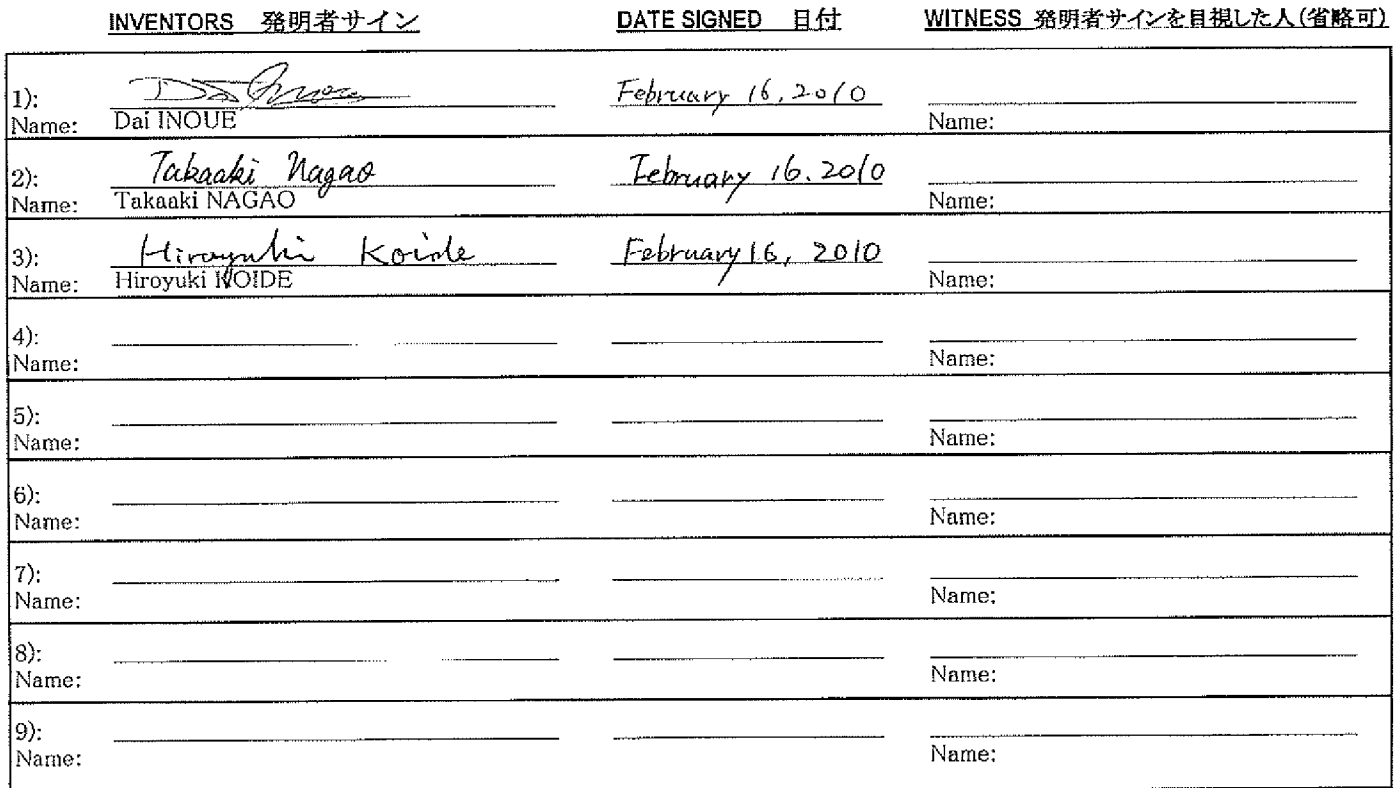 INVENTORS 発明者サイン DATE SIGNED 日付 WITNESS 発明者サインを目視した人(省略可)
1): Dai Inoue February 16, 2010
Name: Dai INOUE Name:
2): Takaaki Nagao February 16. 2010
Name: Takaaki NAGAO Name:
3): Hiroyuki Koide February 16, 2010
Name: Hiroyuki KOIDE Name:
4):
Name: Name:
5):
Name: Name:
6):
Name: Name:
7):
Name: Name:
8):
Name: Name:
9):
Name: Name: